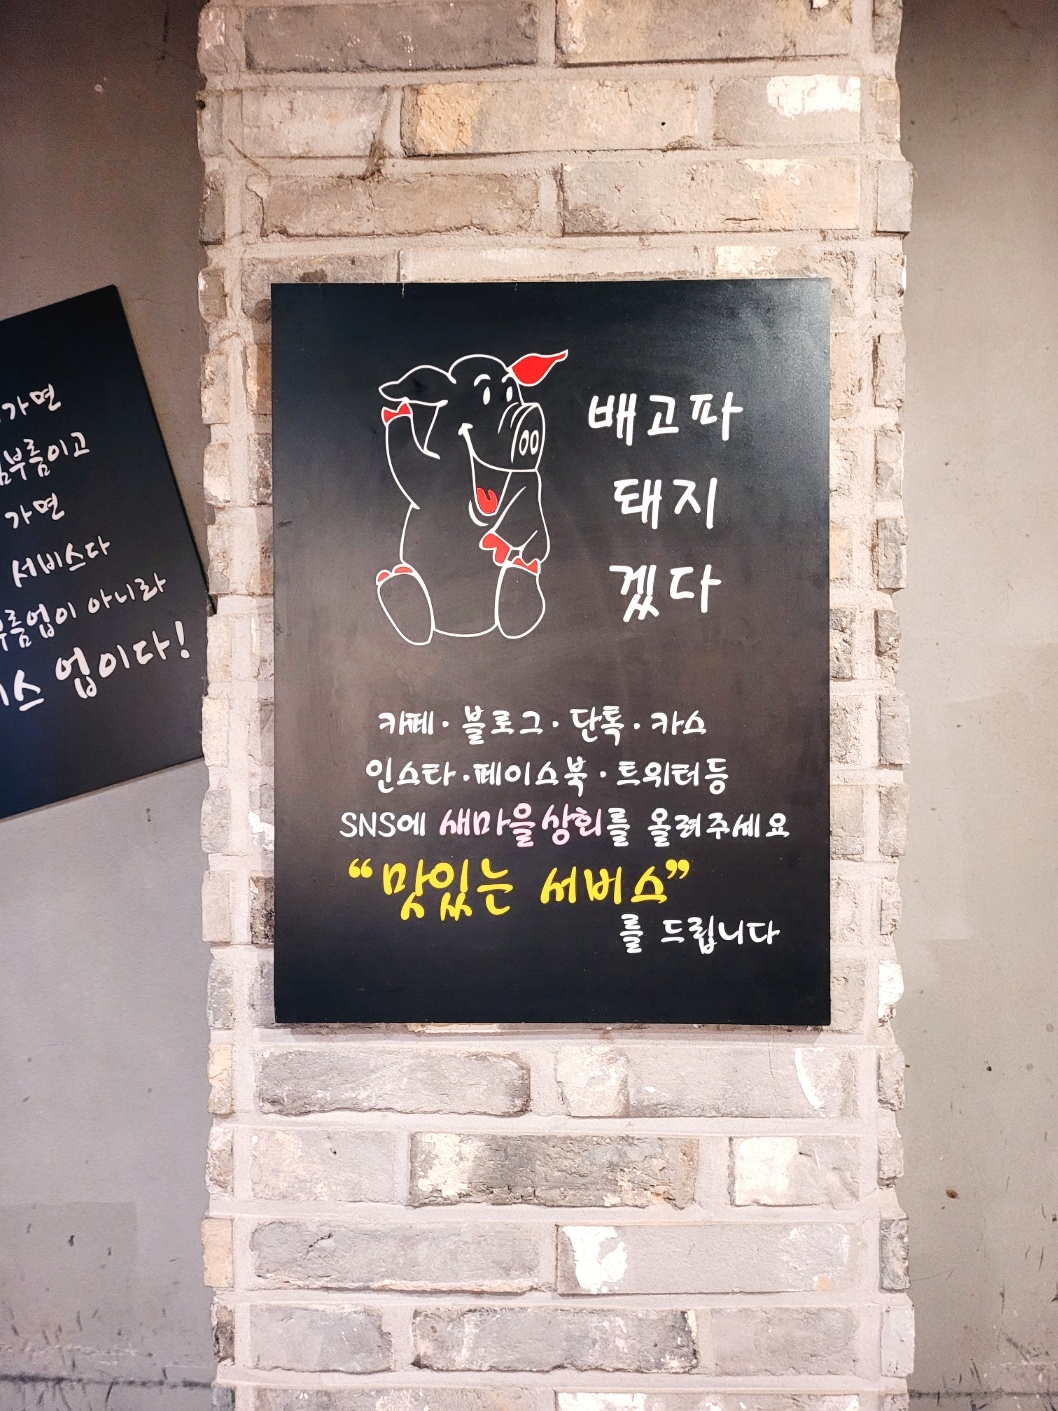 가면
심부름이고
가면
서비스다
부름업이 아니라
비스 업이다!
배고파
돼지
겠다
카페·블로그·단톡·카스
인스타·페이스북·트위터등
SNS에 새마을상회를 올려주세요
“맛있는 서비스”
를 드립니다